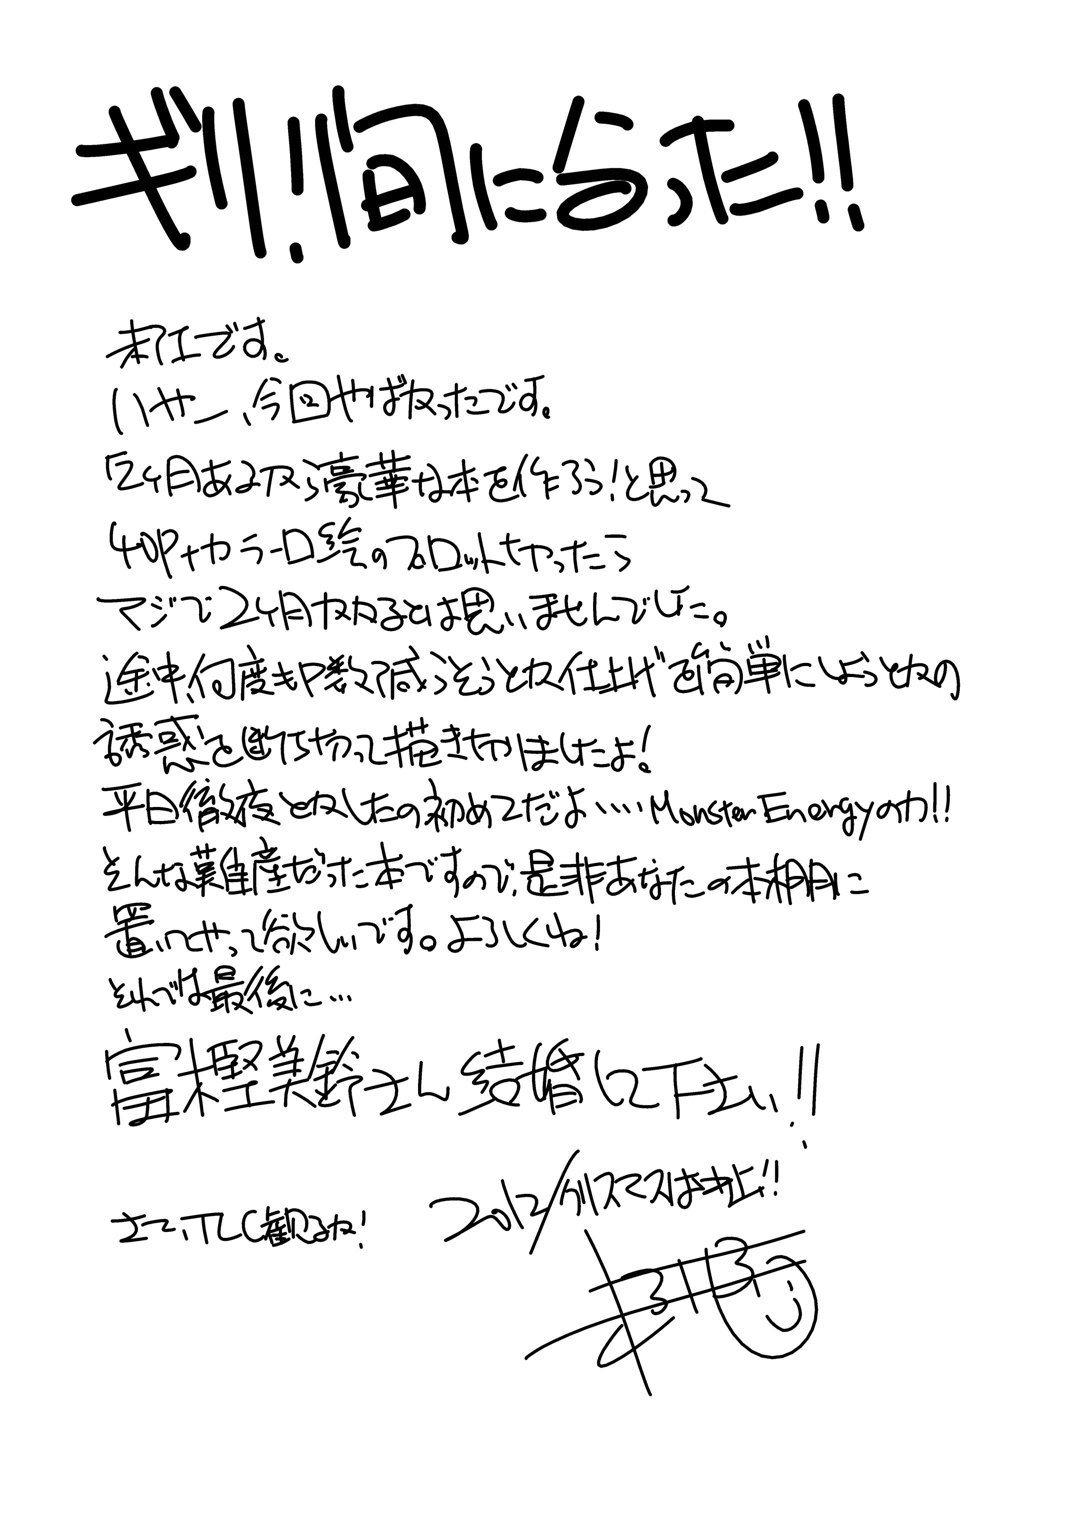 ギリ!間にあった!!
未仕です。
いやー、今回やばかったです。
「2ヶ月あるなら豪華な本を作ろう!と思って
40P+カラー口絵のプロットをやったら
マジで2ヶ月かかるとは思いませんでした。
途中、何度もP数減らそうとか仕上げを簡単にしようとかの
誘惑を断ち切って描ききりましたよ!
平日徹夜とかしたの初めてだよ……Monster Energyの力!!
そんな難産だった本ですので、是非あなたの本棚に
置いてやって欲しいです。よろしくね!
それでは最後に…
富樫美鈴さん結婚して下さい!!
さて、TLC観るか!
2012/クリスマスは中止!!